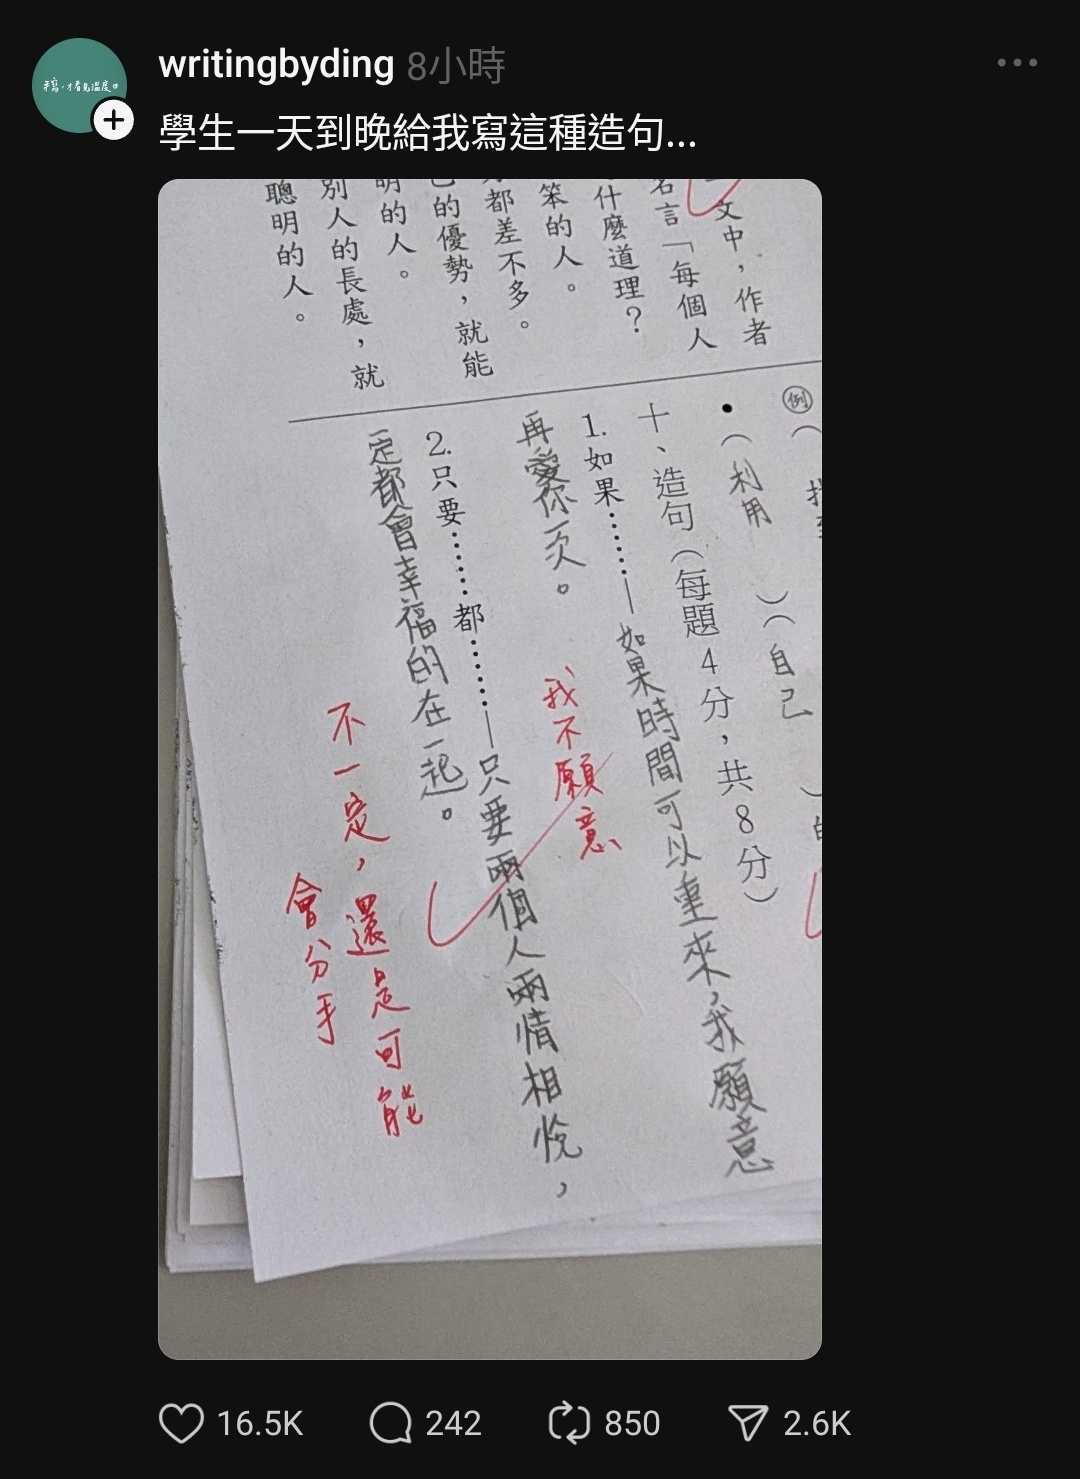 手寫，才看見溫度
writingbyding 8小時
學生一天到晚給我寫這種造句...
文中，作者
名言「每個人
什麼道理？
笨的人。
都差不多。
的優勢，就能
明的人。
別人的長處，就
聰明的人。
例（
•（利用　）（自己　）
十、造句（每題4分，共8分）
1.如果……—如果時間可以重來，我願意
再愛你一次。
我不願意
2.只要……都……—只要兩個人兩情相悅，
定都會幸福的在一起。
不一定，還是可能
會分手
16.5K 242 850 2.6K